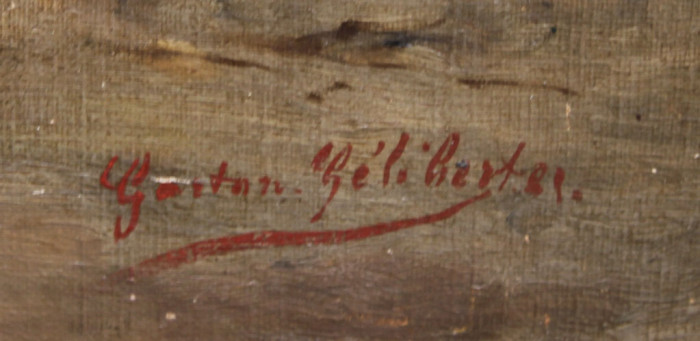 Gaston. Gélibertes.